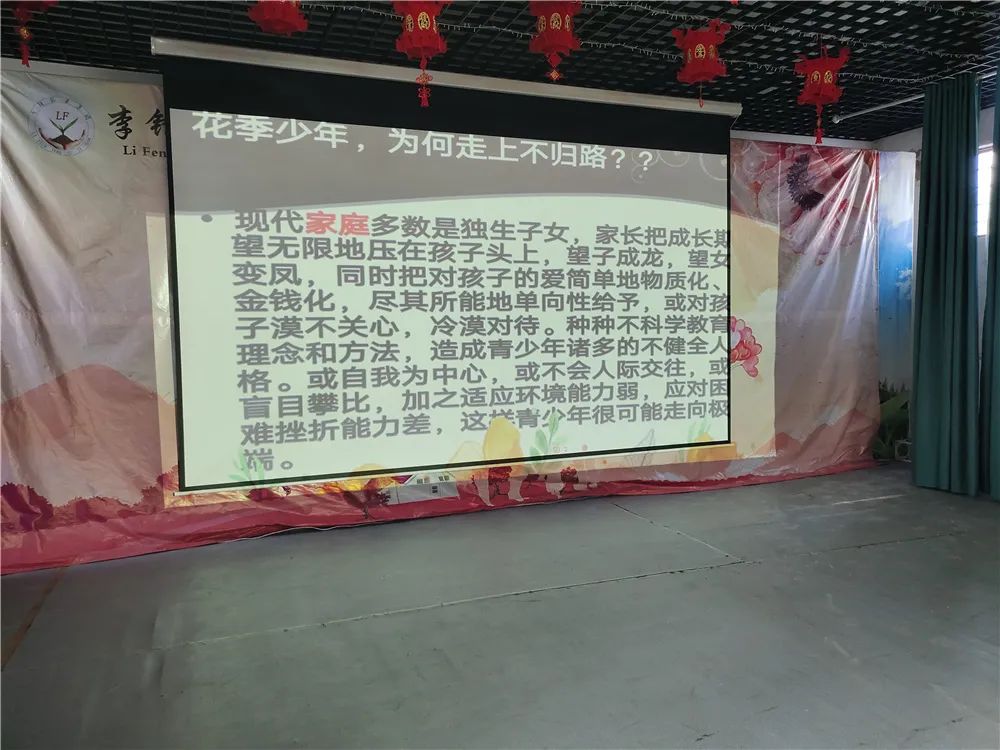 LF
李
Li Fen
花季少年，为何走上不归路？？
• 现代家庭多数是独生子女，家长把成长期
望无限地压在孩子头上，望子成龙，望女
变凤，同时把对孩子的爱简单地物质化、
金钱化，尽其所能地单向性给予，或对孩
子漠不关心，冷漠对待。种种不科学教育
理念和方法，造成青少年诸多的不健全人
格。或自我为中心，或不会人际交往，或
盲目攀比，加之适应环境能力弱，应对困
难挫折能力差，这样青少年很可能走向极
端。